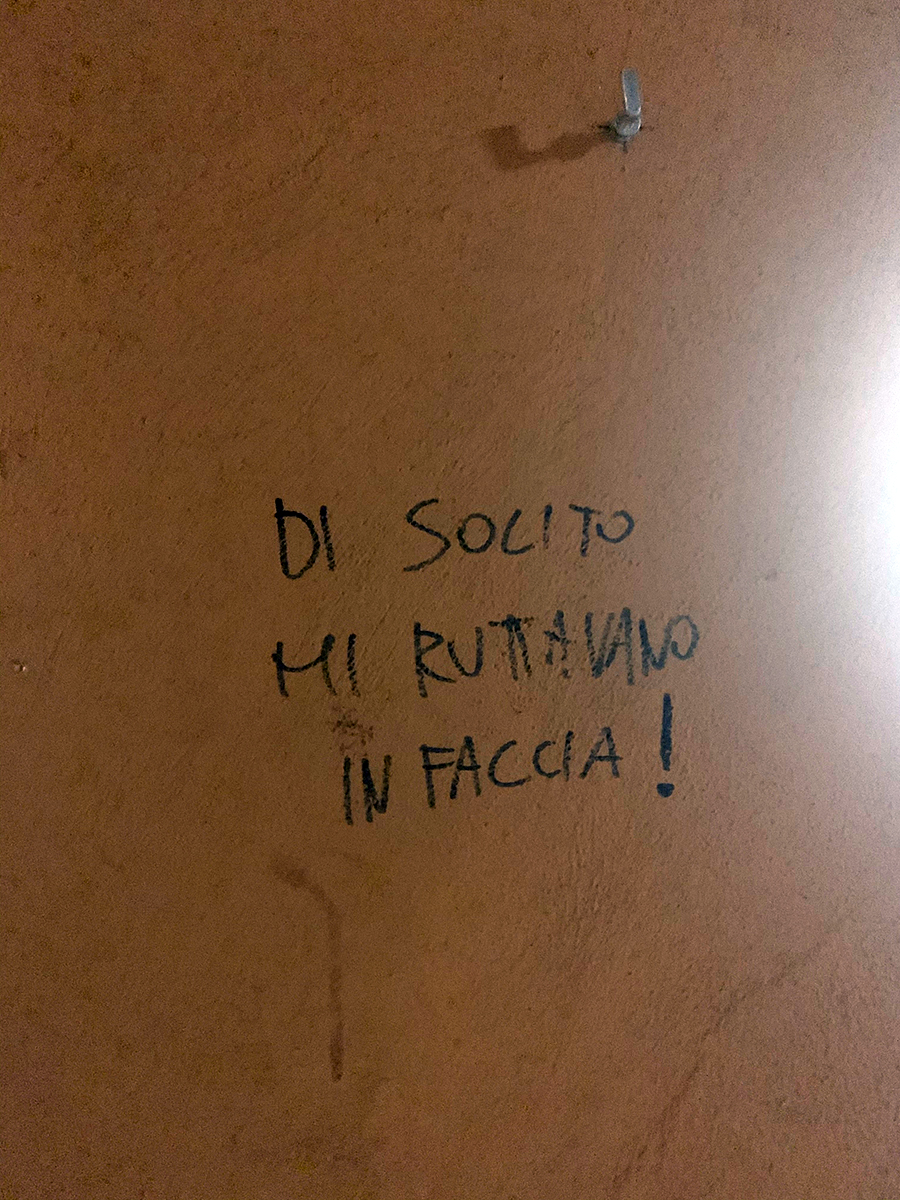 DI SOLITO
MI RUTTAVANO
IN FACCIA!